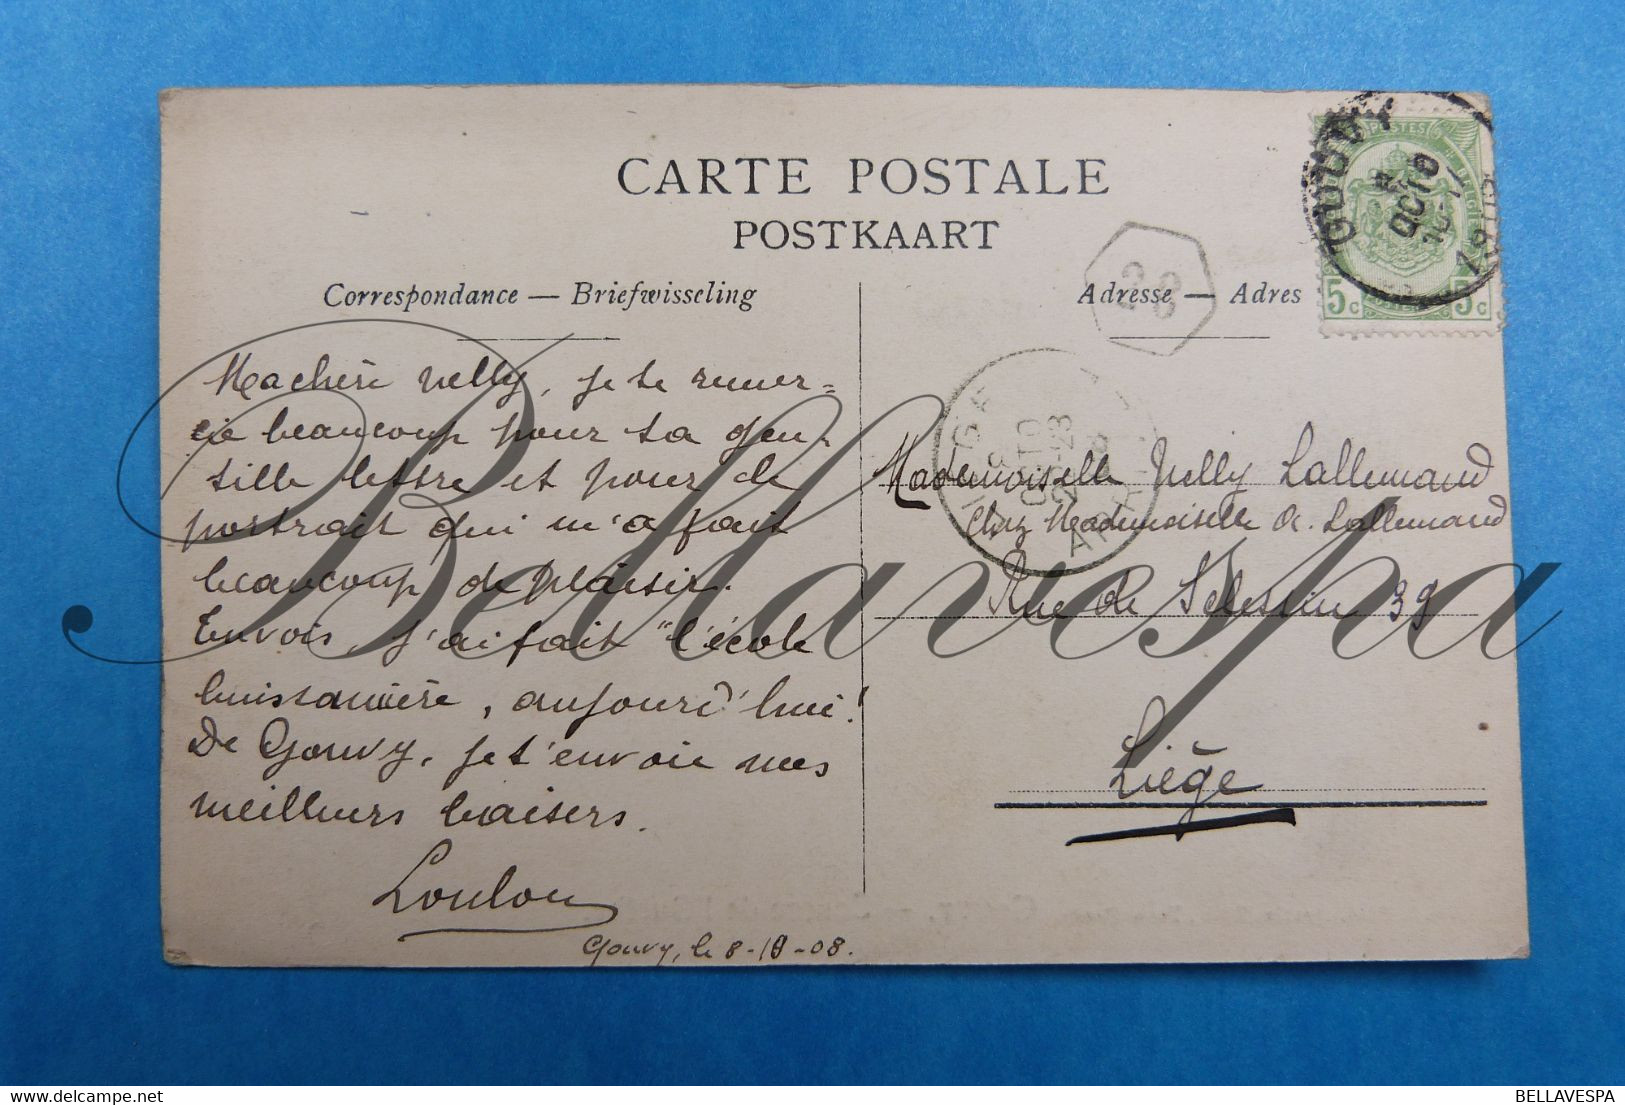 CARTE POSTALE
POSTKAART
Correspondance — Briefwisseling
Ma chère Nelly, je te remer=
cie beaucoup pour ta gen-
tille lettre et pour le
portrait qui m'a fait
beaucoup de plaisir.
Envois, j'ai fait "l'école
buissonnière, aujourd'hui!
De Gouvy, je t'envoie mes
meilleurs baisers.
Loulou
Gouvy, le 8-10-08.
Adresse — Adres
Mademoiselle Nelly Lallemand
Chez Mademoiselle Lallemand
Rue de Sclessin 39
Liège
GOUVY
OCTO
1908
POSTES
5c
5c
OCTO
Bellavespa
BELLAVESPA